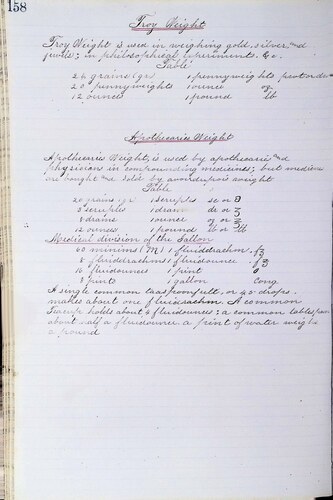 158
Troy Weight
Troy Weight is used in weighing gold, silver and
jewels; in philosophical experiments. &c.
Table
24 grains (gr) 1 pennyweight, pwt or dwt
20 pennyweights 1 ounce oz
12 ounces 1 pound lb
Apothecaries Weight
Apothecaries Weight, is used by apothecaries and
physicians in compounding medicines; but medicines
are bought and sold by avoirdupois weight
Table
20 grains gr 1 scruple sc or ℈
3 scruples 1 dram dr or ʒ
8 drams 1 ounce oz or ℥
12 ounces 1 pound lb or ℔
Medical division of the Gallon
60 minims (M) 1 fluiddrachm. fʒ
8 fluiddrachms 1 fluidounce. f℥
16 fluidounces 1 pint O
8 pints 1 gallon Cong
A single common teaspoonfull, or 45 drops.
makes about one fluidrachm. A common
teacup holds about 4 fluidounces; a common tablespoon
about half a fluidounce. a pint of water weighs
a pound